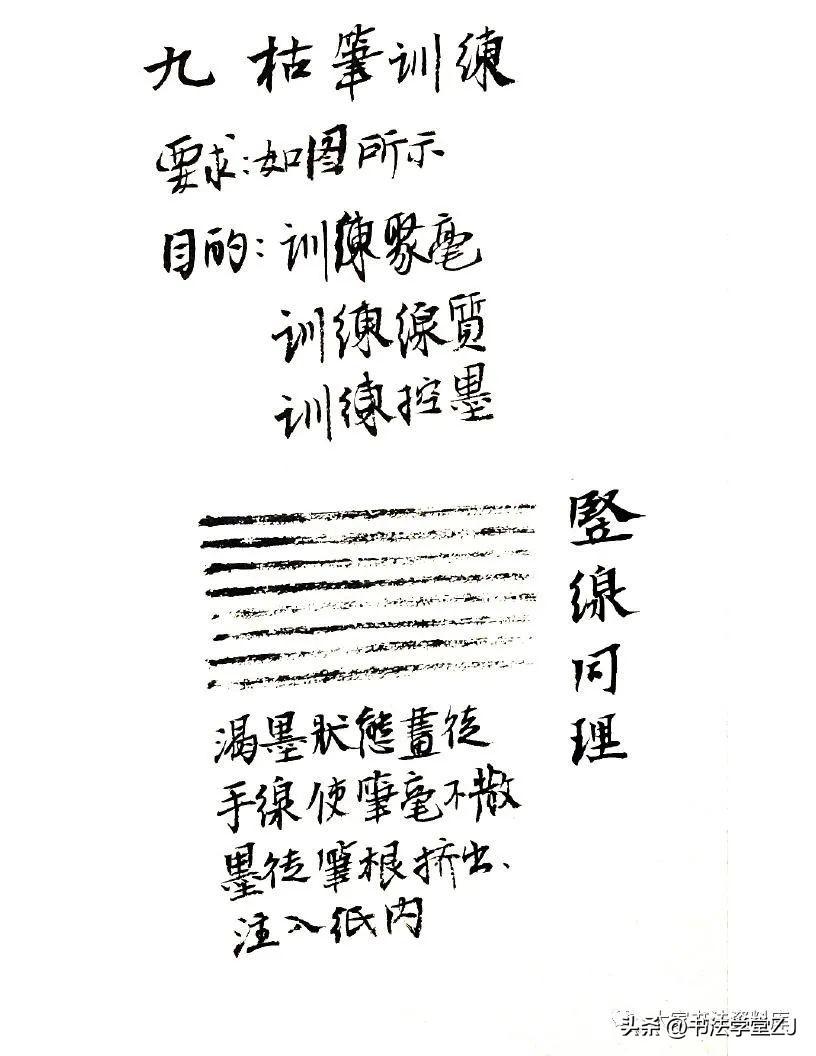 九 枯筆训練
要求:如图所示
目的:训練聚毫
训練線質
训練控墨
竪線同理
渴墨狀態畫徒
手線使筆毫不散
墨從筆根挤出、
注入纸内
大家书法资料库
头条@书法学堂ZJ